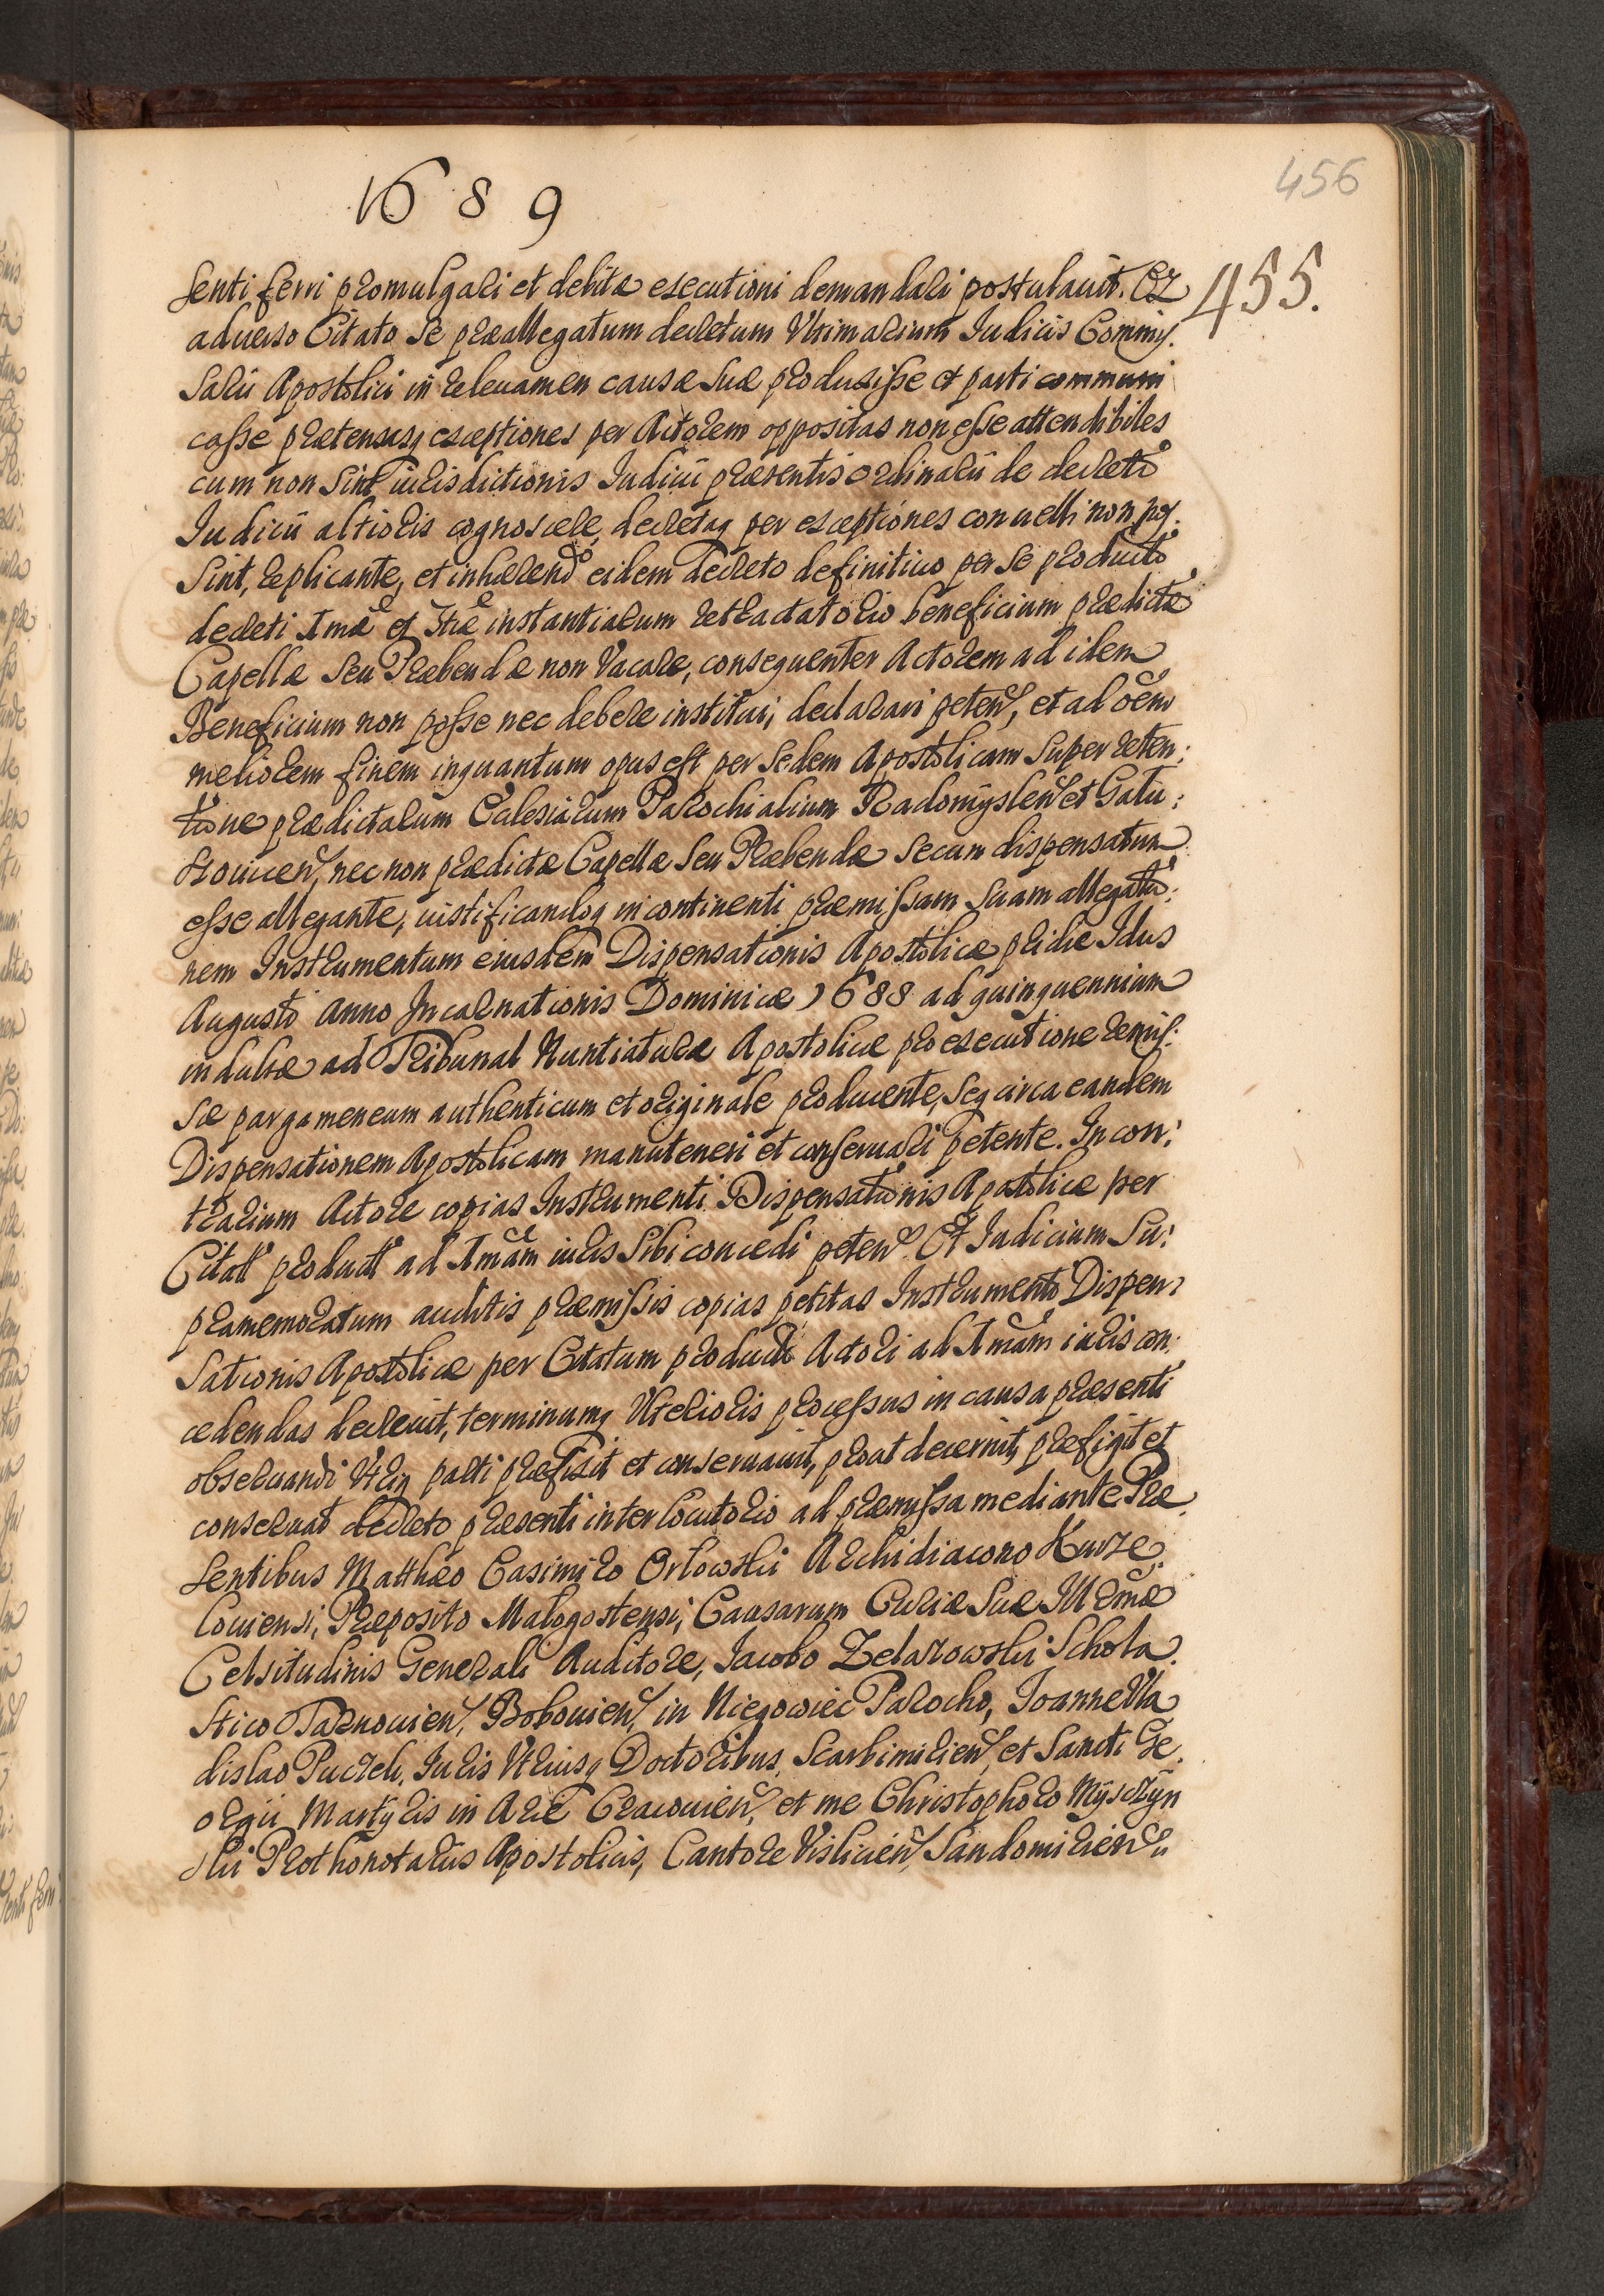 456
1689
455.
senti ferri promulgari et debitæ executioni demandari postulauit. Ex
aduerso Citato se præallegatum decretum Vltimarium Iudicis Commis.
sarii Apostolici in releuamen causæ suæ produxisse et parti communi
casse prætensasq exceptiones per Actorem oppositas non esse attendibiles
cum non sint iurisdictionis Iudicii præsentis ordinarii de decreto
Iudicii altioris cognoscere, decretaq per exceptiones conuelli non pos.
sint, replicante, et inhærendo eidem decreto definitiuo per se producto
decreti Imæ et IIæ instantiarum retractatorio beneficium prædictæ
Capellæ seu Præbendæ non Vacare, consequenter Actorem ad idem
Beneficium non posse nec debere institui, declarari peten, et ad oem
meliorem finem inquantum opus est per Sedem Apostolicam super reten:
tione prædictarum Eclesiarum Parochialium Radomyslen et Gatu:
szowicen, nec non prædictæ Capellæ seu Præbendæ secum dispensatum
esse allegante, iustificandoq in continenti præmissam suam allegatio:
nem Instrumentum eiusdem Dispensationis Apostolicæ pridie Idus
Augusti Anno Incarnationis Dominicæ 1688 ad quinquennium
indultæ ad Tribunal Nuntiaturæ Apostolicæ pro executione remis:
sæ pargameneum authenticum et originale producente, seq circa eandem
Dispensationem Apostolicam manuteneri et conseruari petente. In con:
trarium Actore copias Instrumenti Dispensationis Apostolicæ per
Citatt produtt ad Imam iuris sibi concedi peten. Et Iudicium su:
pramemoratum auditis præmissis copias petitas Instrumento Dispen:
sationis Apostolicæ per Citatum produtt Actori ad Imam iuris con:
cedendas decreuit, terminumq Vlterioris processus in causa præsenti
obseruandi Vtriq parti præfixit et conseruauit, prout decernit, præfigit et
conseruat decreto præsenti interlocutorio ad præmissa mediante Præ
sentibus Matthæo Casimiro Orłowski Archidiacono Kurze.
louiensi, Præposito Małogostensi, Causarum Curiæ Suæ Illrmæ
Celsitudinis Generali Auditore, Iacobo Zelazowski Schola.
stico Tarnouien, Bobouien, in Niegowiec Parocho, Ioanne Vla
dislao Puczek, Iuris Vtriusq Doctoribus, Scarbimirien, et Sancti Ge.
orgii Martyris in Arce Cracouien, et me Christophoro Mysczyn
ski Prothonotariis Apostolicis, Cantore Vislicien, Sandomirien